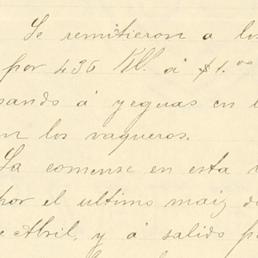 Se remitieron a los
por 436 Kl. á $1.00
sando á yeguas en l
on los vaqueros.
La comense en esta
por el ultimo maiz d
e Abril, y á salido p